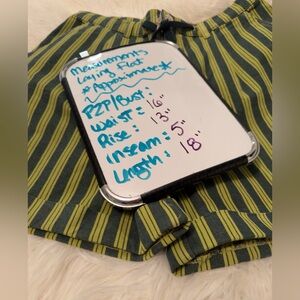 Measurements
Laying Flat
*Approximate*
P2P/Bust:
Waist: 16"
Rise: 13"
Inseam: 5"
Length: 18"